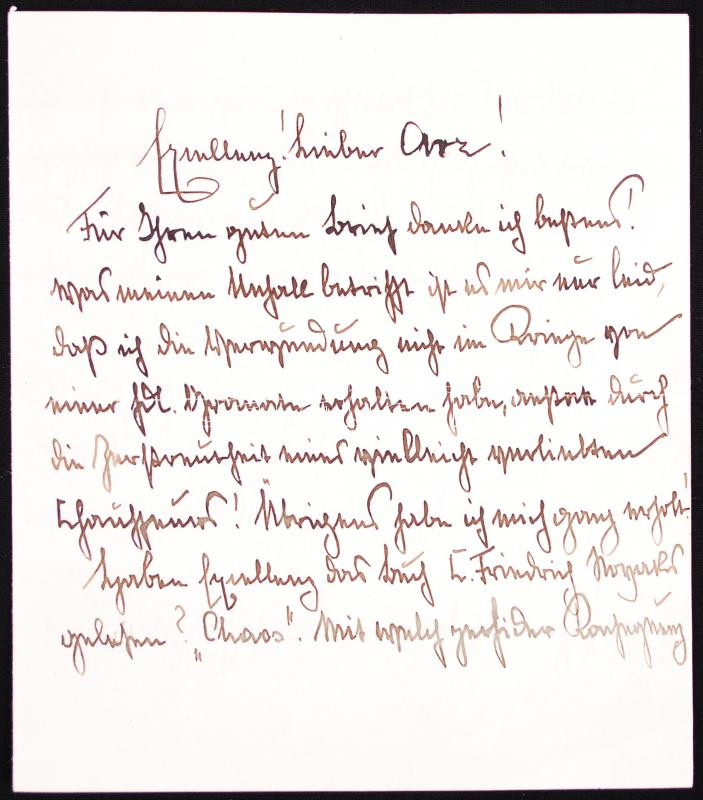 Exzellenz! Lieber Arz!
Für Ihren guten Brief danke ich bestens!
Was meinen Unfall betrifft ist es mir nur leid,
daß ich die Verwundung nicht im Kriege von
einer fdl. Granate erhalten habe, anstatt durch
die Zerstreutheit eines vielleicht verliebten
Chauffeurs! Übrigens habe ich mich ganz erholt!
Haben Exzellenz das Buch C. Friedrich Novaks
gelesen? "Chaos". Mit welch perfider